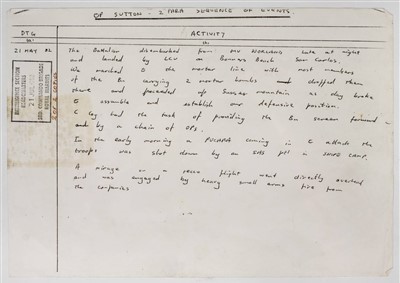 OP SUTTON - 2 PARA SEQUENCE OF EVENTS
DTG
ACTIVITY
21 MAY 82
The Battalion disembarked from MV NORLAND late at night
and landed by LCU on Bonners Beach San Carlos.
We marched to the mortar line with most members
of the Bn carrying 2 mortar bombs and dropped them
there and proceeded up Sussex mountain as day broke
to assemble and establish our defensive position.
C Coy had the task of providing the Bn screen forward
and by a chain of OPs.
In the early morning a PUCARA coming in to attack the
troops was shot down by an SAS pl a
A mirage on a recce flight went directly overhead
and was engaged by heavy small arms fire from
the companies